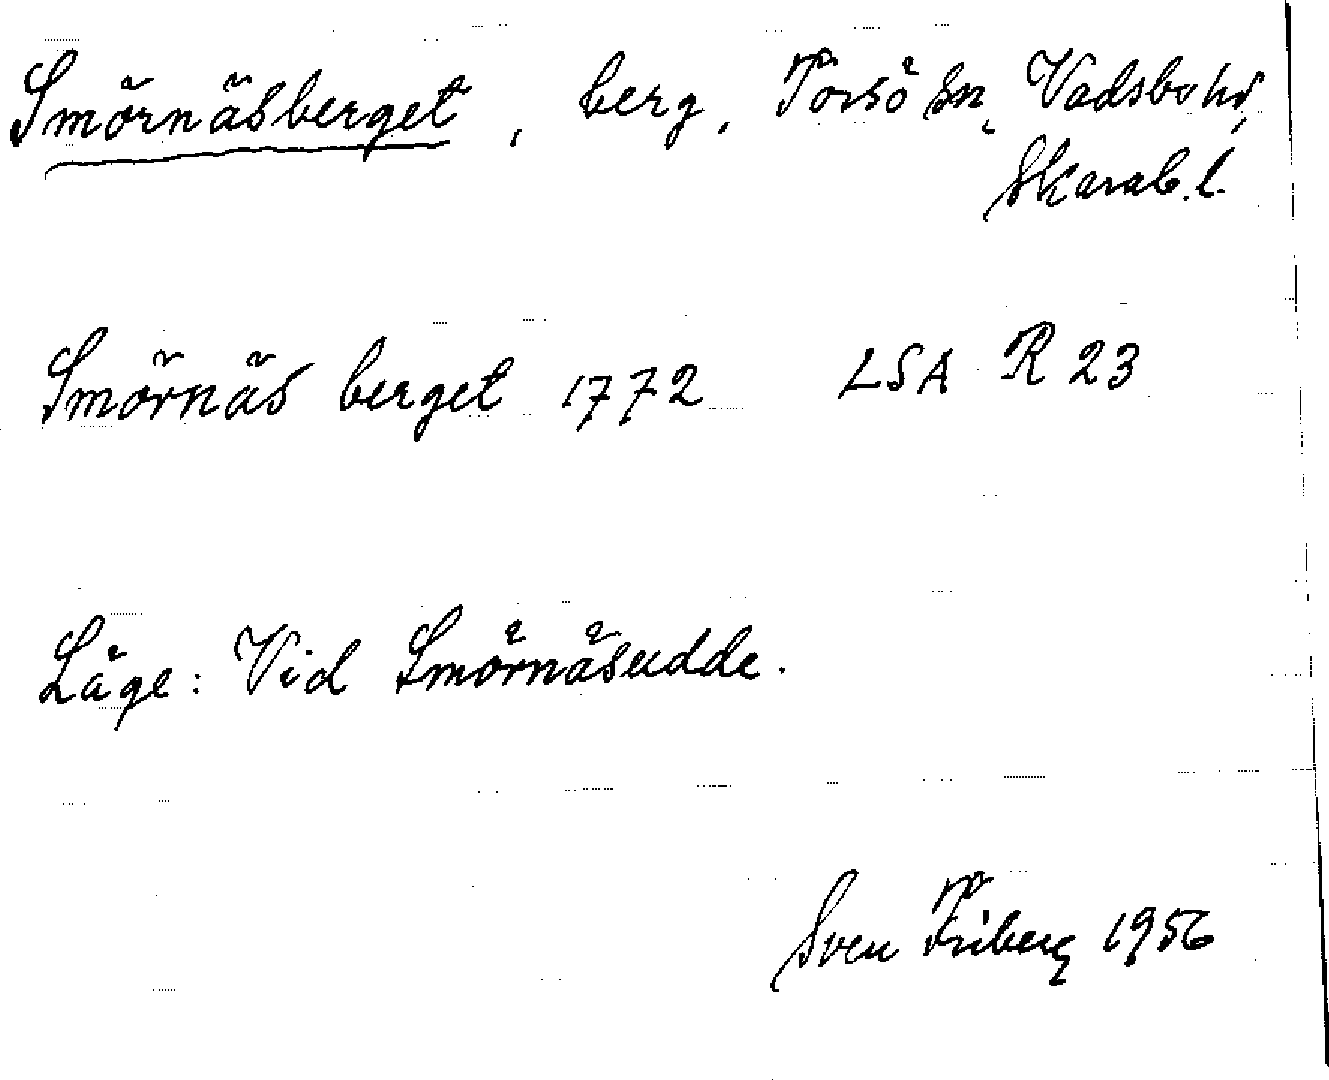 Smörnäsberget, berg, Torsö sn, Vadsbo hd,
Skarab.l.
Smörnäs berget 1772 LSA R 23
Läge: Vid Smörnäsudde.
Sven Friberg 1956